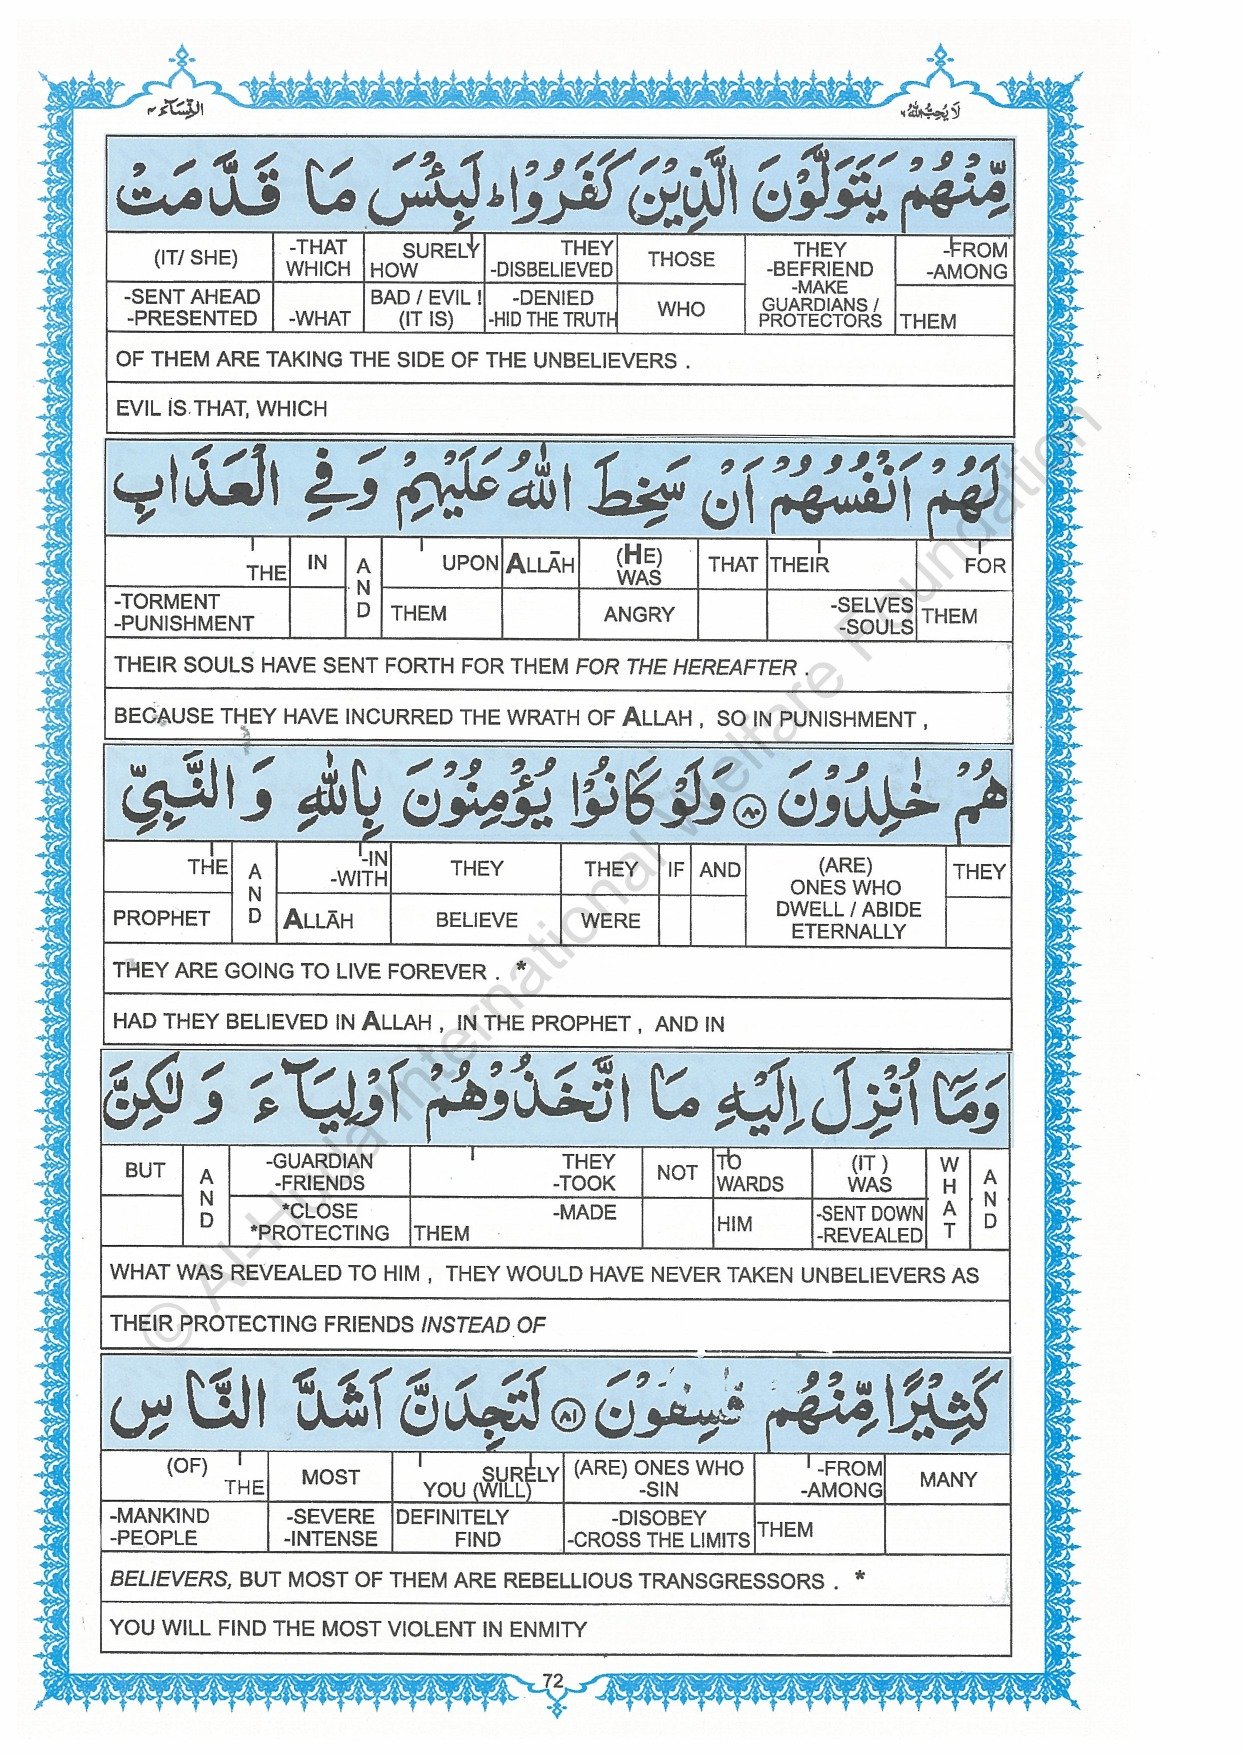 النِّسَآء ٤ لَا يُحِبُّ اللّٰهُ ٦
مِّنْهُمْ يَتَوَلَّوْنَ الَّذِيْنَ كَفَرُوْا ؕ لَبِئْسَ مَا قَدَّمَتْ
(IT/ SHE) -THAT WHICH SURELY HOW THEY -DISBELIEVED THOSE THEY -BEFRIEND -MAKE GUARDIANS / PROTECTORS -FROM -AMONG
-SENT AHEAD -PRESENTED -WHAT BAD / EVIL ! (IT IS) -DENIED -HID THE TRUTH WHO THEM
OF THEM ARE TAKING THE SIDE OF THE UNBELIEVERS .
EVIL IS THAT, WHICH
لَهُمْ اَنْفُسُهُمْ اَنْ سَخِطَ اللّٰهُ عَلَيْهِمْ وَ فِي الْعَذَابِ
THE IN AND UPON ALLĀH (HE) WAS THAT THEIR FOR
-TORMENT -PUNISHMENT THEM ANGRY -SELVES -SOULS THEM
THEIR SOULS HAVE SENT FORTH FOR THEM FOR THE HEREAFTER .
BECAUSE THEY HAVE INCURRED THE WRATH OF ALLAH , SO IN PUNISHMENT ,
هُمْ خٰلِدُوْنَ ۝٨٠ وَلَوْ كَانُوْا يُؤْمِنُوْنَ بِاللّٰهِ وَ النَّبِيِّ
THE AND -IN -WITH THEY THEY IF AND (ARE) ONES WHO DWELL / ABIDE ETERNALLY THEY
PROPHET ALLĀH BELIEVE WERE
THEY ARE GOING TO LIVE FOREVER . *
HAD THEY BELIEVED IN ALLAH , IN THE PROPHET , AND IN
وَمَآ اُنْزِلَ اِلَيْهِ مَا اتَّخَذُوْهُمْ اَوْلِيَآءَ وَ لٰكِنَّ
BUT AND -GUARDIAN -FRIENDS THEY -TOOK NOT TO WARDS (IT ) WAS WHAT AND
*CLOSE *PROTECTING THEM -MADE HIM -SENT DOWN -REVEALED
WHAT WAS REVEALED TO HIM , THEY WOULD HAVE NEVER TAKEN UNBELIEVERS AS
THEIR PROTECTING FRIENDS INSTEAD OF
كَثِيْرًا مِّنْهُمْ فٰسِقُوْنَ ۝٨١ لَتَجِدَنَّ اَشَدَّ النَّاسِ
(OF) THE MOST SURELY YOU (WILL) (ARE) ONES WHO -SIN -FROM -AMONG MANY
-MANKIND -PEOPLE -SEVERE -INTENSE DEFINITELY FIND -DISOBEY -CROSS THE LIMITS THEM
BELIEVERS, BUT MOST OF THEM ARE REBELLIOUS TRANSGRESSORS . *
YOU WILL FIND THE MOST VIOLENT IN ENMITY
72
© Al-Huda International Welfare Foundation